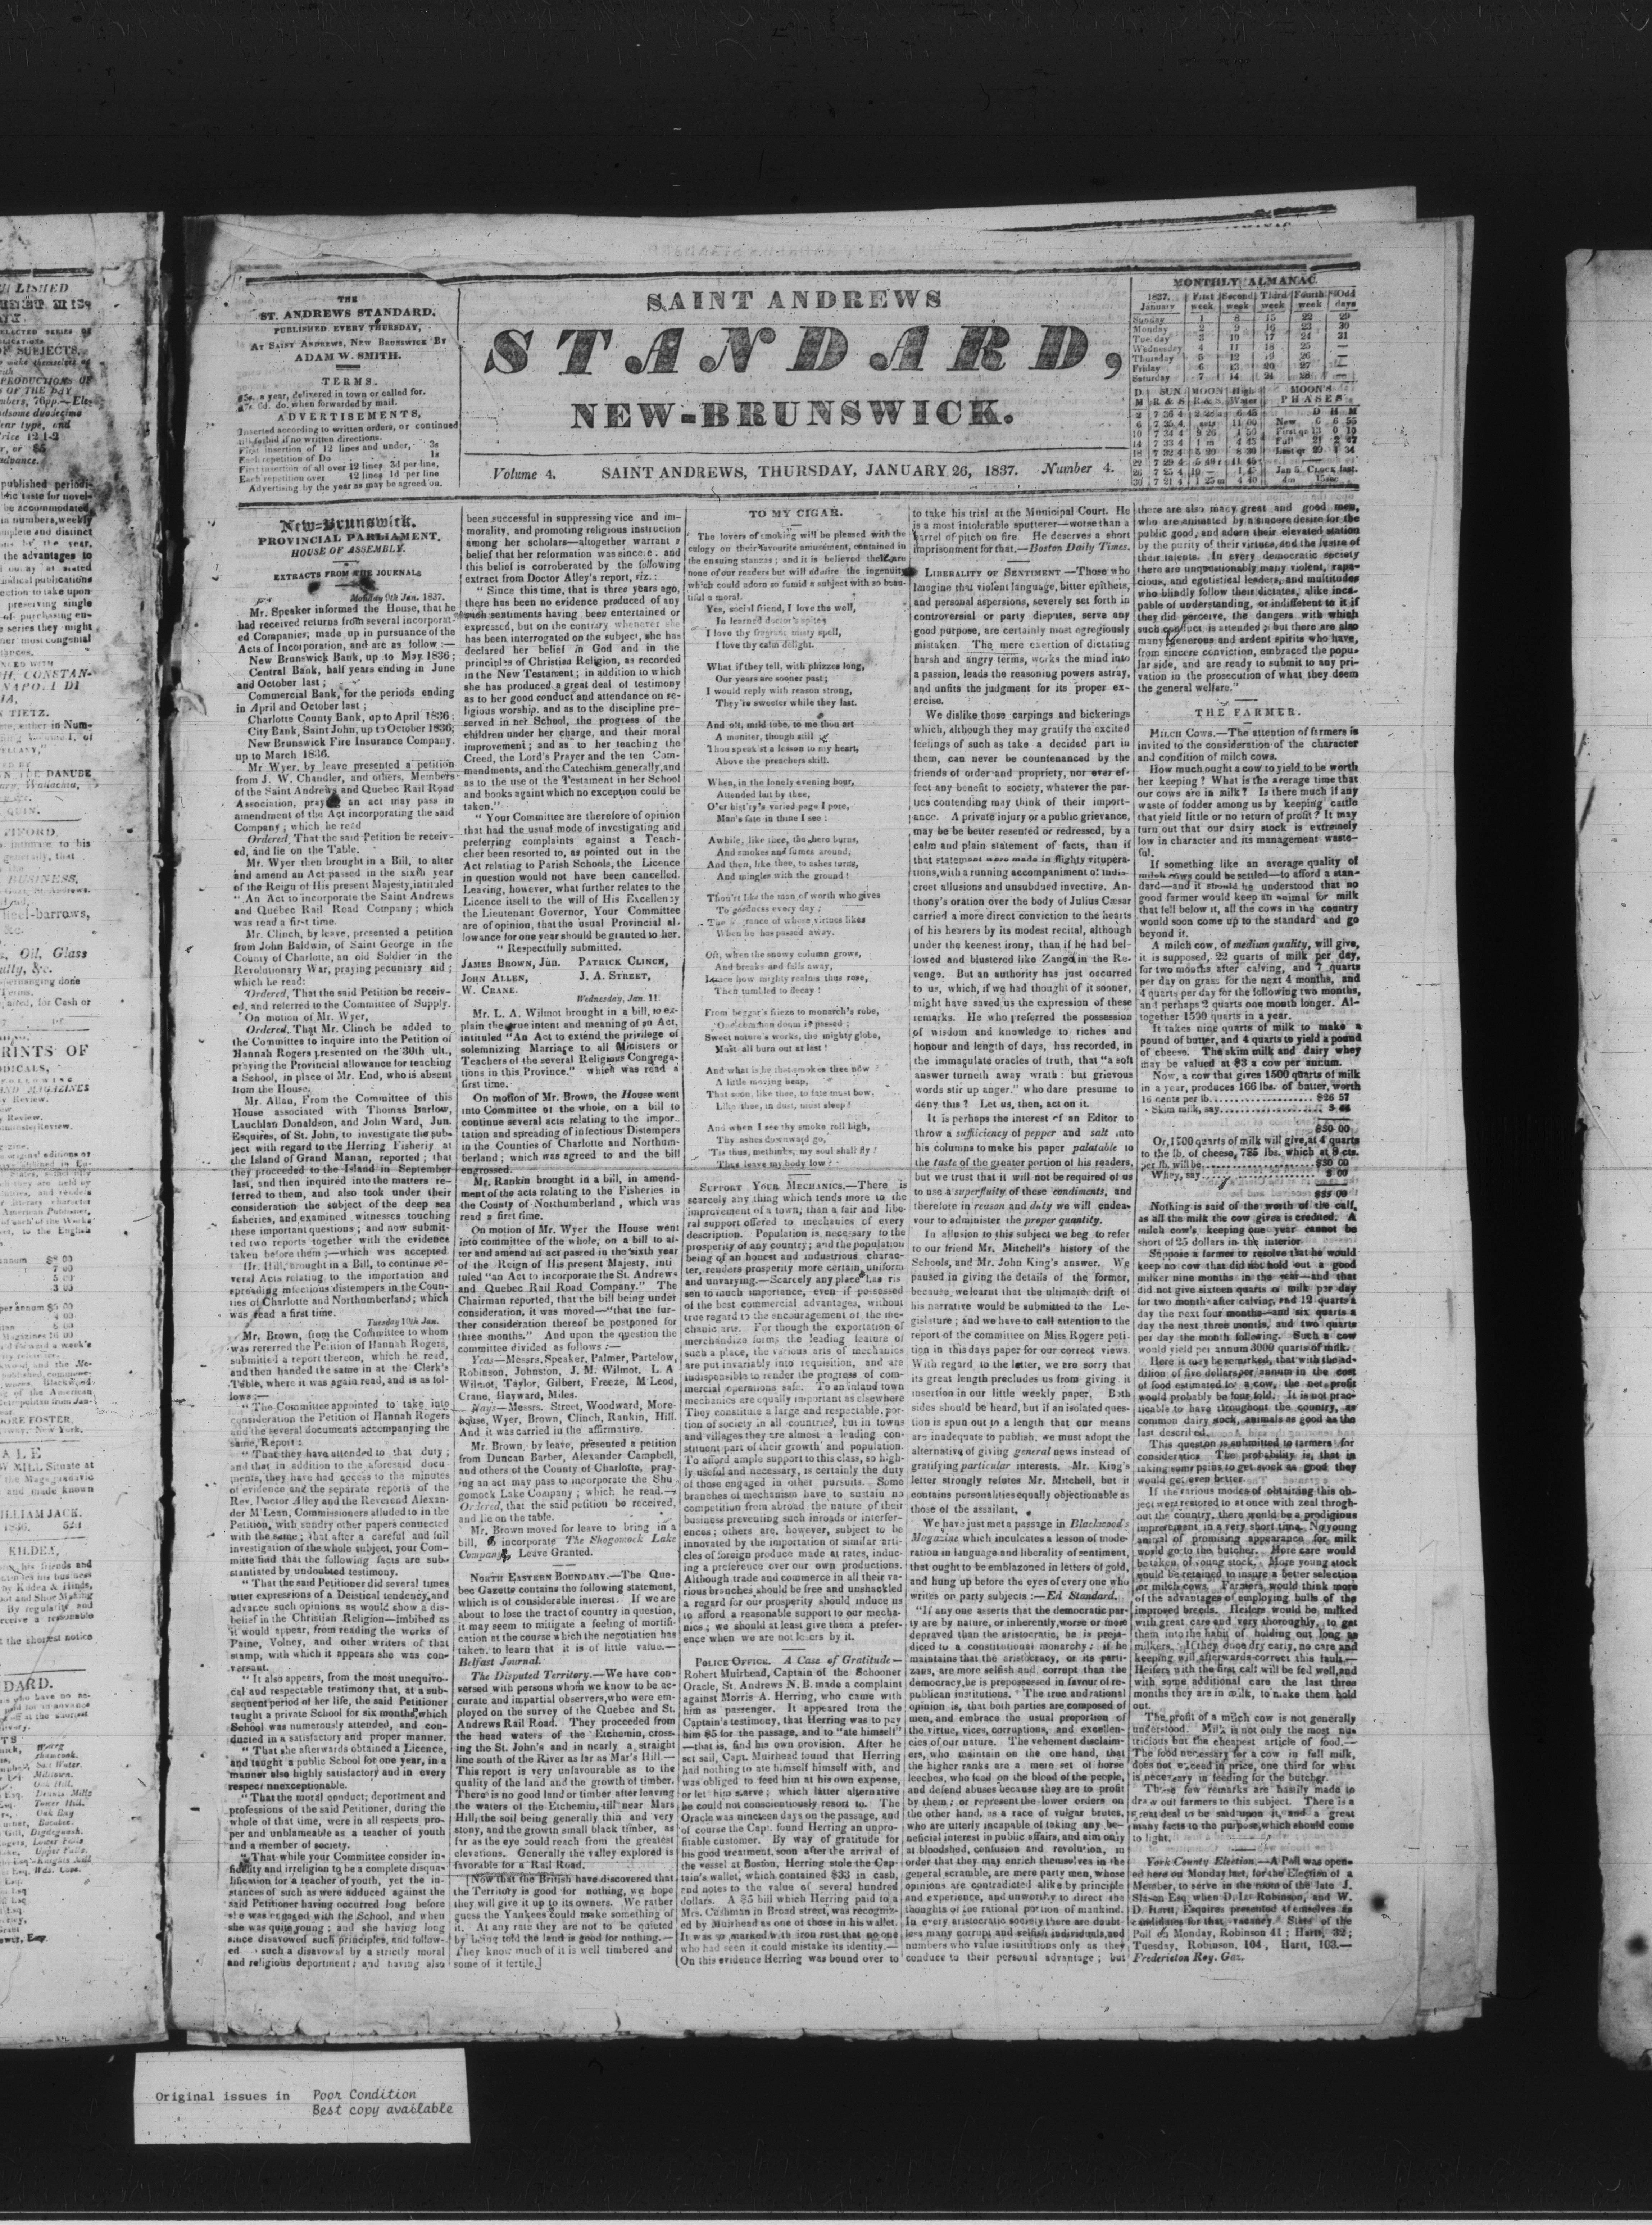 THE
ST. ANDREWS STANDARD.
PUBLISHED EVERY THURSDAY,
AT SAINT ANDREWS, NEW BRUNSWICK BY
ADAM W. SMITH.
TERMS.
a year, delivered in town or called for.
6d. do. when forwarded by mail.
ADVERTISEMENTS,
Inserted according to written orders, or continued
till forbid if no written directions.
First insertion of 12 lines and under, 3s
Each repetition of Do 1s
First insertion of all over 12 lines 3d per line,
Each repetition over 12 lines 1d per line
Advertising by the year as may be agreed on.
SAINT ANDREWS
STANDARD,
NEW-BRUNSWICK.
Volume 4. SAINT ANDREWS, THURSDAY, JANUARY 26, 1837. Number 4.
MONTHLY ALMANAC
1837. First Second Third Fourth Odd
January week week week week days
Sunday 1 8 15 22 29
Monday 2 9 16 23 30
Tuesday 3 10 17 24 31
Wednesday 4 11 18 25 —
Thursday 5 12 19 26 —
Friday 6 13 20 27 —
Saturday 7 14 21 28 —
New-Brunswick.
PROVINCIAL PARLIAMENT.
HOUSE OF ASSEMBLY.
EXTRACTS FROM THE JOURNALS
Monday 9th Jan. 1837.
Mr. Speaker informed the House, that he
had received returns from several incorporat-
ed Companies, made up in pursuance of the
Acts of Incorporation, and are as follow :—
New Brunswick Bank, up to May 1836 ;
Central Bank, half years ending in June
and October last ;
Commercial Bank, for the periods ending
in April and October last ;
Charlotte County Bank, up to April 1836 ;
City Bank, Saint John, up to October 1836;
New Brunswick Fire Insurance Company.
up to March 1836.
Mr. Wyer, by leave presented a petition
from J. W. Chandler, and others, Members
of the Saint Andrews and Quebec Rail Road
Association, praying an act may pass in
amendment of the Act incorporating the said
Company ; which he read
Ordered, That the said Petition be receiv-
ed, and lie on the Table.
Mr. Wyer then brought in a Bill, to alter
and amend an Act passed in the sixth year
of the Reign of His present Majesty, intituled
" An Act to incorporate the Saint Andrews
and Quebec Rail Road Company ; which
was read a first time.
Mr. Clinch, by leave, presented a petition
from John Baldwin, of Saint George in the
County of Charlotte, an old Soldier in the
Revolutionary War, praying pecuniary aid ;
which he read:
Ordered, That the said Petition be receiv-
ed, and referred to the Committee of Supply.
On motion of Mr. Wyer,
Ordered, That Mr. Clinch be added to
the Committee to inquire into the Petition of
Hannah Rogers presented on the 30th ult.,
praying the Provincial allowance for teaching
a School, in place of Mr. End, who is absent
from the House.
Mr. Allan, From the Committee of this
House associated with Thomas Barlow,
Lauchlan Donaldson, and John Ward, Jun.
Esquires, of St. John, to investigate the sub-
ject with regard to the Herring Fisheriy at
the Island of Grand Manan, reported ; that
they proceeded to the Island in September
last, and then inquired into the matters re-
ferred to them, and also took under their
consideration the subject of the deep sea
fisheries, and examined witnesses touching
these important questions ; and now submit-
ted two reports together with the evidence
taken before them ;—which was accepted
Mr. Hill, brought in a Bill, to continue se-
veral Acts relating to the importation and
spreading infectious distempers in the Coun-
ties of Charlotte and Northumberland; which
was read a first time.
Tuesday 10th Jan.
Mr. Brown, from the Committee to whom
was rererred the Petition of Hannah Rogers,
submitted a report thereon, which he read,
and then handed the same in at the Clerk's
Table, where it was again read, and is as fol-
lows :—
" The Committee appointed to take into
consideration the Petition of Hannah Rogers
and the several documents accompanying the
same, Report :
" That they have attended to that duty ;
and that in addition to the aforesaid docu-
ments, they have had access to the minutes
of evidence and the separate reports of the
Rev. Doctor Alley and the Reverend Alexan-
der M'Lean, Commissioners alluded to in the
Petition, with sundry other papers connected
with the same ; that after a careful and full
investigation of the whole subject, your Com-
mitte find that the following facts are sub-
stantiated by undoubted testimony.
" That the said Petitioner did several times
utter expressions of a Deistical tendency, and
advance such opinions as would show a dis-
belief in the Christian Religion—imbibed as
it would appear, from reading the works of
Paine, Volney, and other writers of that
stamp, with which it appears she was con-
versant.
" It also appears, from the most unequivo-
cal and respectable testimony that, at a sub-
sequent period of her life, the said Petitioner
taught a private School for six months, which
School was numerously attended, and con-
ducted in a satisfactory and proper manner.
" That she afterwards obtained a Licence,
and taught a public School for one year, in a
manner also highly satisfactory and in every
respect unexceptionable.
" That the moral conduct; deportment and
professions of the said Petitioner, during the
whole of that time, were in all respects pro-
per and unblameable as a teacher of youth
and a member of society.
" That while your Committee consider in-
fidelity and irreligion to be a complete disqua-
lification for a teacher of youth, yet the in-
stances of such as were adduced against the
said Petitioner having occurred long before
she was engaged with the School, and when
she was quite young ; and she having long
since disavowed such principles, and follow-
ed such a disavowal by a strictly moral
and religious deportment ; and having also
been successful in suppressing vice and im-
morality, and promoting religious instruction
among her scholars—altogether warrant a
belief that her reformation was sincere ; and
this belief is corroberated by the following
extract from Doctor Alley's report, viz. :
" Since this time, that is three years ago,
there has been no evidence produced of any
such sentiments having been entertained or
expressed, but on the contrary whenever she
has been interrogated on the subject, she has
declared her belief in God and in the
principles of Christian Religion, as recorded
in the New Testament; in addition to which
she has produced a great deal of testimony
as to her good conduct and attendance on re-
ligious worship, and as to the discipline pre-
served in her School, the progress of the
children under her charge, and their moral
improvement ; and as to her teaching the
Creed, the Lord's Prayer and the ten Com-
mendments, and the Catechism generally, and
as to the use of the Testament in her School
and books againt which no exception could be
taken."
" Your Committee are therefore of opinion
that had the usual mode of investigating and
preferring complaints against a Teach-
cher been resorted to, as pointed out in the
Act relating to Parish Schools, the Licence
in question would not have been cancelled.
Leaving, however, what further relates to the
Licence itself to the will of His Excellency
the Lieutenant Governor, Your Committee
are of opinion, that the usual Provincial al-
lowance for one year should be granted to her.
" Respectfully submitted.
JAMES BROWN, Jun. PATRICK CLINCH,
JOHN ALLEN, J. A. STREET,
W. CRANE.
Wednesday, Jan. 11.
Mr. L. A. Wilmot brought in a bill, to ex-
plain the true intent and meaning of an Act,
intituled "An Act to extend the privilege of
solemnizing Marriage to all Ministers or
Teachers of the several Religious Congrega-
tions in this Province." which was read a
first time.
On motion of Mr. Brown, the House went
into Committee of the whole, on a bill to
continue several acts relating to the impor-
tation and spreading of infectious Distempers
in the Counties of Charlotte and Northum-
berland ; which was agreed to and the bill
engrossed.
Mr. Rankin brought in a bill, in amend-
ment of the acts relating to the Fisheries in
the County of Northumberland , which was
read a first time.
On motion of Mr. Wyer the House went
into committee of the whole, on a bill to al-
ter and amend ad act passed in the sixth year
of the Reign of His present Majesty, inti
tuled "an Act to incorporate the St. Andrews
and Quebec Rail Road Company." The
Chairman reported, that the bill being under
consideration, it was moved—"that the fur-
ther consideration thereof be postponed for
three months." And upon the question the
committee divided as follows :—
Yeas—Messrs. Speaker, Palmer, Partelow,
Robinson, Johnston, J. M. Wilmot, L. A
Wilmot, Taylor, Gilbert, Freeze, M'Leod,
Crane, Hayward, Miles.
Nays—Messrs. Street, Woodward, More-
house, Wyer, Brown, Clinch, Rankin, Hill.
And it was carried in the affirmative.
Mr. Brown, by leave, presented a petition
from Duncan Barber, Alexander Campbell,
and others of the County of Charlotte, pray-
ing an act may pass to incorporate the Sho-
gomock Lake Company ; which he read.—
Ordered, that the said petition be received,
and lie on the table.
Mr. Brown moved for leave to bring in a
bill, to incorporate The Shogomock Lake
Company. Leave Granted.
NORTH EASTERN BOUNDARY.—The Que-
bec Gazette contains the following statement,
which is of considerable interest. If we are
about to lose the tract of country in question,
it may seem to mitigate a feeling of mortifi-
cation at the course which the negotiation has
taken, to learn that it is of little value.—
Belfast Journal.
The Disputed Territory.—We have con-
versed with persons whom we know to be ac-
curate and impartial observers, who were em-
ployed on the survey of the Quebec and St.
Andrews Rail Road. They proceeded from
the head waters of the Etchemin, cross-
ing the St. John's and in nearly a straight
line south of the River as far as Mar's Hill.—
This report is very unfavourable as to the
quality of the land and the growth of timber.
There is no good land or timber after leaving
the waters of the Etchemin, till near Mars
Hill, the soil being generally thin and very
stony, and the growth small black timber, as
far as the eye could reach from the greatest
elevations. Generally the valley explored is
favorable for a Rail Road.
[Now that the British have discovered that
the Territory is good for nothing, we hope
they will give it up to its owners. We rather
guess the Yankees could make something of
it. At any rate they are not to be quieted
by being told the land is good for nothing.—
They know much of it is well timbered and
some of it fertile.]
TO MY CIGAR.
The lovers of smoking will be pleased with the
eulogy on their favourite amusement, contained in
the ensuing stanzas ; and it is believed there are
none of our readers but will admire the ingenuity
which could adorn so fumid a subject with so beau-
tiful a moral.
Yes, social friend, I love the well,
In learned doctor's spite;
I love thy fragrant misty spell,
I love thy calm delight.
What if they tell, with phizzes long,
Our years are sooner past;
I would reply with reason strong,
They're sweeter while they last.
And oft, mild tube, to me thou art
A moniter, though still
Thou speak'st a lesson to my heart,
Above the preachers skill.
When, in the lonely evening hour,
Attended but by thee,
O'er hist'ry's varied page I pore,
Man's fate in thine I see :
Awhile, like thee, the hero burns,
And smokes and fumes around,
And then, like thee, to ashes turns,
And mingles with the ground !
Thou'rt like the man of worth who gives
To goodness every day ;
The fragrance of whose virtues lives
When he has passed away.
Oft, when the snowy column grows,
And breaks and falls away,
I trace how mighty realms thus rose,
Then tumbled to decay !
From beggar's frieze to monarch's robe,
One common doom is passed ;
Sweet nature's works, the mighty globe,
Must all burn out at last !
And what is he that smokes thee now ?
A little moving heap,
That soon, like thee, to fate must bow,
Like thee, in dust, must sleep !
And when I see thy smoke roll high,
Thy ashes downward go,
'Tis thus, methinks, my soul shall fly !
Thus leave my body low !
SUPPORT YOUR MECHANICS.—There is
scarcely any thing which tends more to the
improvement of a town, than a fair and libe-
ral support offered to mechanics of every
description. Population is necessary to the
prosperity of any country; and the population
being of an honest and industrious charac-
ter, renders prosperity more certain, uniform
and unvarying.—Scarcely any place has ris
sen to much importance, even if possessed
of the best commercial advantages, without
true regard to the encouragement of the me-
chanic arts. For though the exportation of
merchandize forms the leading feature of
such a place, the various arts of mechanics
are put invariably into requisition, and are
indispensible to render the progress of com-
mercial operations safe. To an inland town
mechanics are equally important as elsewhere
They constitute a large and respectable por-
tion of society in all countries, but in towns
and villages they are almost a leading con-
stituent part of their growth and population.
To afford ample support to this class, so high-
ly useful and necessary, is certainly the duty
of those engaged in other pursuits. Some
branches of mechanism have to sustain no
competition from abroad, the nature of their
business preventing such inroads or interfer-
ences ; others are, however, subject to be
innovated by the importation of similar arti-
cles of foreign produce made at rates, induc-
ing a preference over our own productions.
Although trade and commerce in all their va-
rious branches should be free and unshackled
a regard for our prosperity should induce us
to afford a reasonable support to our mecha-
nics ; we should at least give them a prefer-
ence when we are not losers by it.
POLICE OFFICE. A Case of Gratitude—
Robert Muirhead, Captain of the Schooner
Oracle, St. Andrews N. B. made a complaint
against Morris A. Herring, who came with
him as passenger. It appeared from the
Captain's testimony, that Herring was to pay
him $5 for the passage, and to "ate himself"
—that is, find his own provision. After he
set sail, Capt. Muirhead found that Herring
had nothing to ate himself himself with, and
was obliged to feed him at his own expense,
or let him starve ; which latter alternative
he could not conscientiously resort to. The
Oracle was nineteen days on the passage, and
of course the Capt. found Herring an unpro-
fitable customer. By way of gratitude for
his good treatment, soon after the arrival of
the vessel at Boston, Herring stole the Cap-
tain's wallet, which contained $33 in cash,
and notes to the value of several hundred
dollars. A $5 bill which Herring paid to a
Mrs. Cushman in Broad street, was recogniz-
ed by Muirhead as one of those in his wallet.
It was so marked with iron rust that no one
who had seen it could mistake its identity.—
On this evidence Herring was bound over to
to take his trial at the Municipal Court. He
is a most intolerable sputterer—worse than a
barrel of pitch on fire. He deserves a short
imprisonment for that.—Boston Daily Times.
LIBERALITY OF SENTIMENT.—Those who
Imagine that violent language, bitter epithets,
and personal aspersions, severely set forth in
controversial or party disputes, serve any
good purpose, are certainly most egregiously
mistaken. The mere exertion of dictating
harsh and angry terms, works the mind into
a passion, leads the reasoning powers astray,
and unfits the judgment for its proper ex-
ercise.
We dislike those carpings and bickerings
which, although they may gratify the excited
feelings of such as take a decided part in
them, can never be countenanced by the
friends of order and propriety, nor ever ef-
fect any benefit to society, whatever the par-
ties contending may think of their import-
ance. A private injury or a public grievance,
may be be better resented or redressed, by a
calm and plain statement of facts, than if
that statement were made in flighty vitupera-
tions, with a running accompaniment of indis-
creet allusions and unsubdued invective. An-
thony's oration over the body of Julius Cæsar
carried a more direct conviction to the hearts
of his hearers by its modest recital, although
under the keenest irony, than if he had bel-
lowed and blustered like Zanga in the Re-
venge. But an authority has just occurred
to us, which, if we had thought of it sooner,
might have saved us the expression of these
remarks. He who preferred the possession
of wisdom and knowledge to riches and
honour and length of days, has recorded, in
the immaculate oracles of truth, that "a soft
answer turneth away wrath : but grievous
words stir up anger." who dare presume to
deny this ? Let us, then, act on it.
It is perhaps the interest of an Editor to
throw a sufficiency of pepper and salt into
his columns to make his paper palatable to
the taste of the greater portion of his readers,
but we trust that it will not be required of us
to use a superfluity of these condiments, and
therefore in reason and duty we will endea-
vour to administer the proper quantity.
In allusion to this subject we beg to refer
to our friend Mr. Mitchell's history of the
Schools, and Mr. John King's answer. We
paused in giving the details of the former,
because we learnt that the ultimate drift of
his narrative would be submitted to the Le-
gislature ; and we have to call attention to the
report of the committee on Miss Rogers peti-
tion in this days paper for our correct views.
With regard to the letter, we are sorry that
its great length precludes us from giving it
insertion in our little weekly paper. Both
sides should be heard, but if an isolated ques-
tion is spun out to a length that our means
are inadequate to publish, we must adopt the
alternative of giving general news instead of
gratifying particular interests. Mr. King's
letter strongly refutes Mr. Mitchell, but it
contains personalities equally objectionable as
those of the assailant.
We have just met a passage in Blackwood's
Magazine which inculcates a lesson of mode-
ration in language and liberality of sentiment,
that ought to be emblazoned in letters of gold,
and hung up before the eyes of every one who
writes or party subjects :—Ed Standard.
"If any one asserts that the democratic par-
ty are by nature, or inherently, worse or more
depraved than the aristocratic, he is preju-
diced to a constitutional monarchy : if he
maintains that the aristocracy, or its parti-
zans, are more selfish and corrupt than the
democracy, he is prepossessed in favour of re-
publican institutions. The true and rational
opinion is, that both parties are composed of
men, and embrace the usual proportion of
the virtue, vices, corruptions, and excellen-
cies of our nature. The vehement disclaim-
ers, who maintain on the one hand, that
the higher ranks are a mere set of horse
leeches, who feed on the blood of the people,
and defend abuses because they are to profit
by them ; or represent the lower orders on
the other hand, as a race of vulgar brutes,
who are utterly incapable of taking any be-
neficial interest in public affairs, and aim only
at bloodshed, confusion and revolution, in
order that they may enrich themselves in the
general scramble, are mere party men, whose
opinions are contradicted alike by principle
and experience, and unworthy to direct the
thoughts of the rational portion of mankind.
In every aristocratic society there are doubt-
less many corrupt and selfish individuals, and
numbers who value institutions only as they
conduce to their personal advantage ; but
there are also many great and good men,
who are animated by a sincere desire for the
public good, and adorn their elevated station
by the purity of their virtues, and the lustre of
their talents. In every democratic society
there are unquestionably many violent, rapa-
cious, and egotistical leaders, and multitudes
who blindly follow their dictates, alike inca-
pable of understanding, or indifferent to it if
they did perceive, the dangers with which
such conduct is attended ; but there are also
many generous and ardent spirits who have,
from sincere conviction, embraced the popu-
lar side, and are ready to submit to any pri-
vation in the prosecution of what they deem
the general welfare."
THE FARMER.
MILCH COWS.—The attention of farmers is
invited to the consideration of the character
and condition of milch cows.
How much ought a cow to yield to be worth
her keeping ? What is the average time that
our cows are in milk ? Is there much if any
waste of fodder among us by keeping cattle
that yield little or no return of profit ? It may
turn out that our dairy stock is extremely
low in character and its management waste-
ful.
If something like an average quality of
milch cows could be settled—to afford a stan-
dard—and it should be understood that no
good farmer would keep an animal for milk
that fell below it, all the cows in the country
would soon come up to the standard and go
beyond it.
A milch cow, of medium quality, will give,
it is supposed, 22 quarts of milk per day,
for two months after calving, and 7 quarts
per day on grass for the next 4 months, and
4 quarts per day for the following two months,
and perhaps 2 quarts one month longer. Al-
together 1530 quarts in a year.
It takes nine quarts of milk to make a
pound of butter, and 4 quarts to yield a pound
of cheese. The skim milk and dairy whey
may be valued at $3 a cow per annum.
Now, a cow that gives 1500 quarts of milk
in a year, produces 166 lbs. of butter, worth
16 cents per lb. $26 57
Skim milk, say
$30 00
Or, 1500 quarts of milk will give, at 4 quarts
to the lb. of cheese, 785 lbs. which at 8 cts.
per lb. will be $30 00
Whey, say 3 00
$33 00
Nothing is said of the worth of the calf,
as all the milk the cow gives is credited. A
milch cow's keeping one year cannot be
short of 25 dollars in the interior.
Suppose a farmer to resolve that he would
keep no cow that did not hold out a good
milker nine months in the year—and that
did not give sixteen quarts of milk per day
for two month after calving, and 12 quarts a
day the next four months—and six quarts a
day the next three months, and two quarts
per day the month following. Such a cow
would yield per annum 3000 quarts of milk.
Here it may be remarked, that with the ad-
dition of five dollars per annum in the cost
of food estimated for a cow, the net profit
would probably be four fold. It is not prac-
ticable to have throughout the country, as
common dairy stock, animals as good as the
last described.
This question is submitted to farmers for
consideration. The probability is, that in
taking some pains to get stock as good they
would get even better.
If the various modes of obtaining this ob-
ject were restored to at once with zeal throgh-
out the country, there would be a prodigious
improvement in a very short time. No young
animal of promising appearance for milk
would go to the butcher. More care would
be taken of young stock. More young stock
would be retained to insure a better selection
for milch cows. Farmers would think more
of the advantages of employing bulls of the
improved breeds. Heifers would be milked
with great care and very thoroughly, to get
them into the habit of holding out long as
milkers. If they once dry early, no care and
keeping will afterwards correct this fault.—
Heifers with the first calf will be fed well, and
with some additional care the last three
months they are in milk, to make them hold
out.
The profit of a milch cow is not generally
understood. Milk is not only the most nu-
tricious but the cheapest article of food.—
The food necessary for a cow in full milk,
does not exceed in price, one third for what
is necessary in feeding for the butcher.
These few remarks are hastily made to
draw out farmers to this subject. There is a
great deal to be said upon it, and a great
many facts to the purpose, which should come
to light.
York County Election.—A Poll was open-
ed here on Monday last, for the Election of a
Member, to serve in the room of the late J.
Slason Esq when D. L. Robinson, and W.
D. Hartt, Esquires presented themselves as
candidates for that vacancy. State of the
Poll on Monday, Robinson 41 ; Hartt, 32 ;
Tuesday, Robinson, 104, Hartt, 103.—
Fredericton Roy. Gaz.
Original issues in Poor Condition
Best copy available